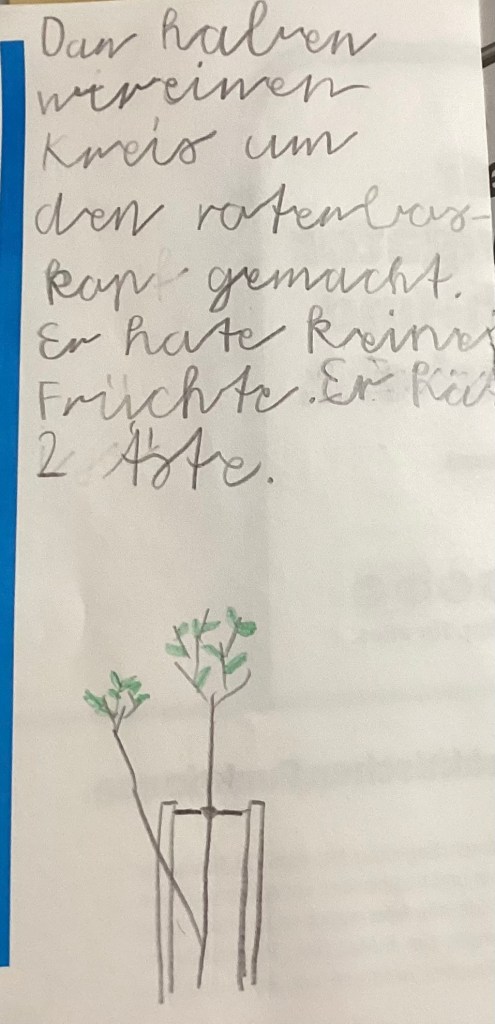 Dan haben
wir einen
Kreis um
den rotenbos-
kop gemacht.
Er hate keine
Früchte. Er hat
2 Äste.